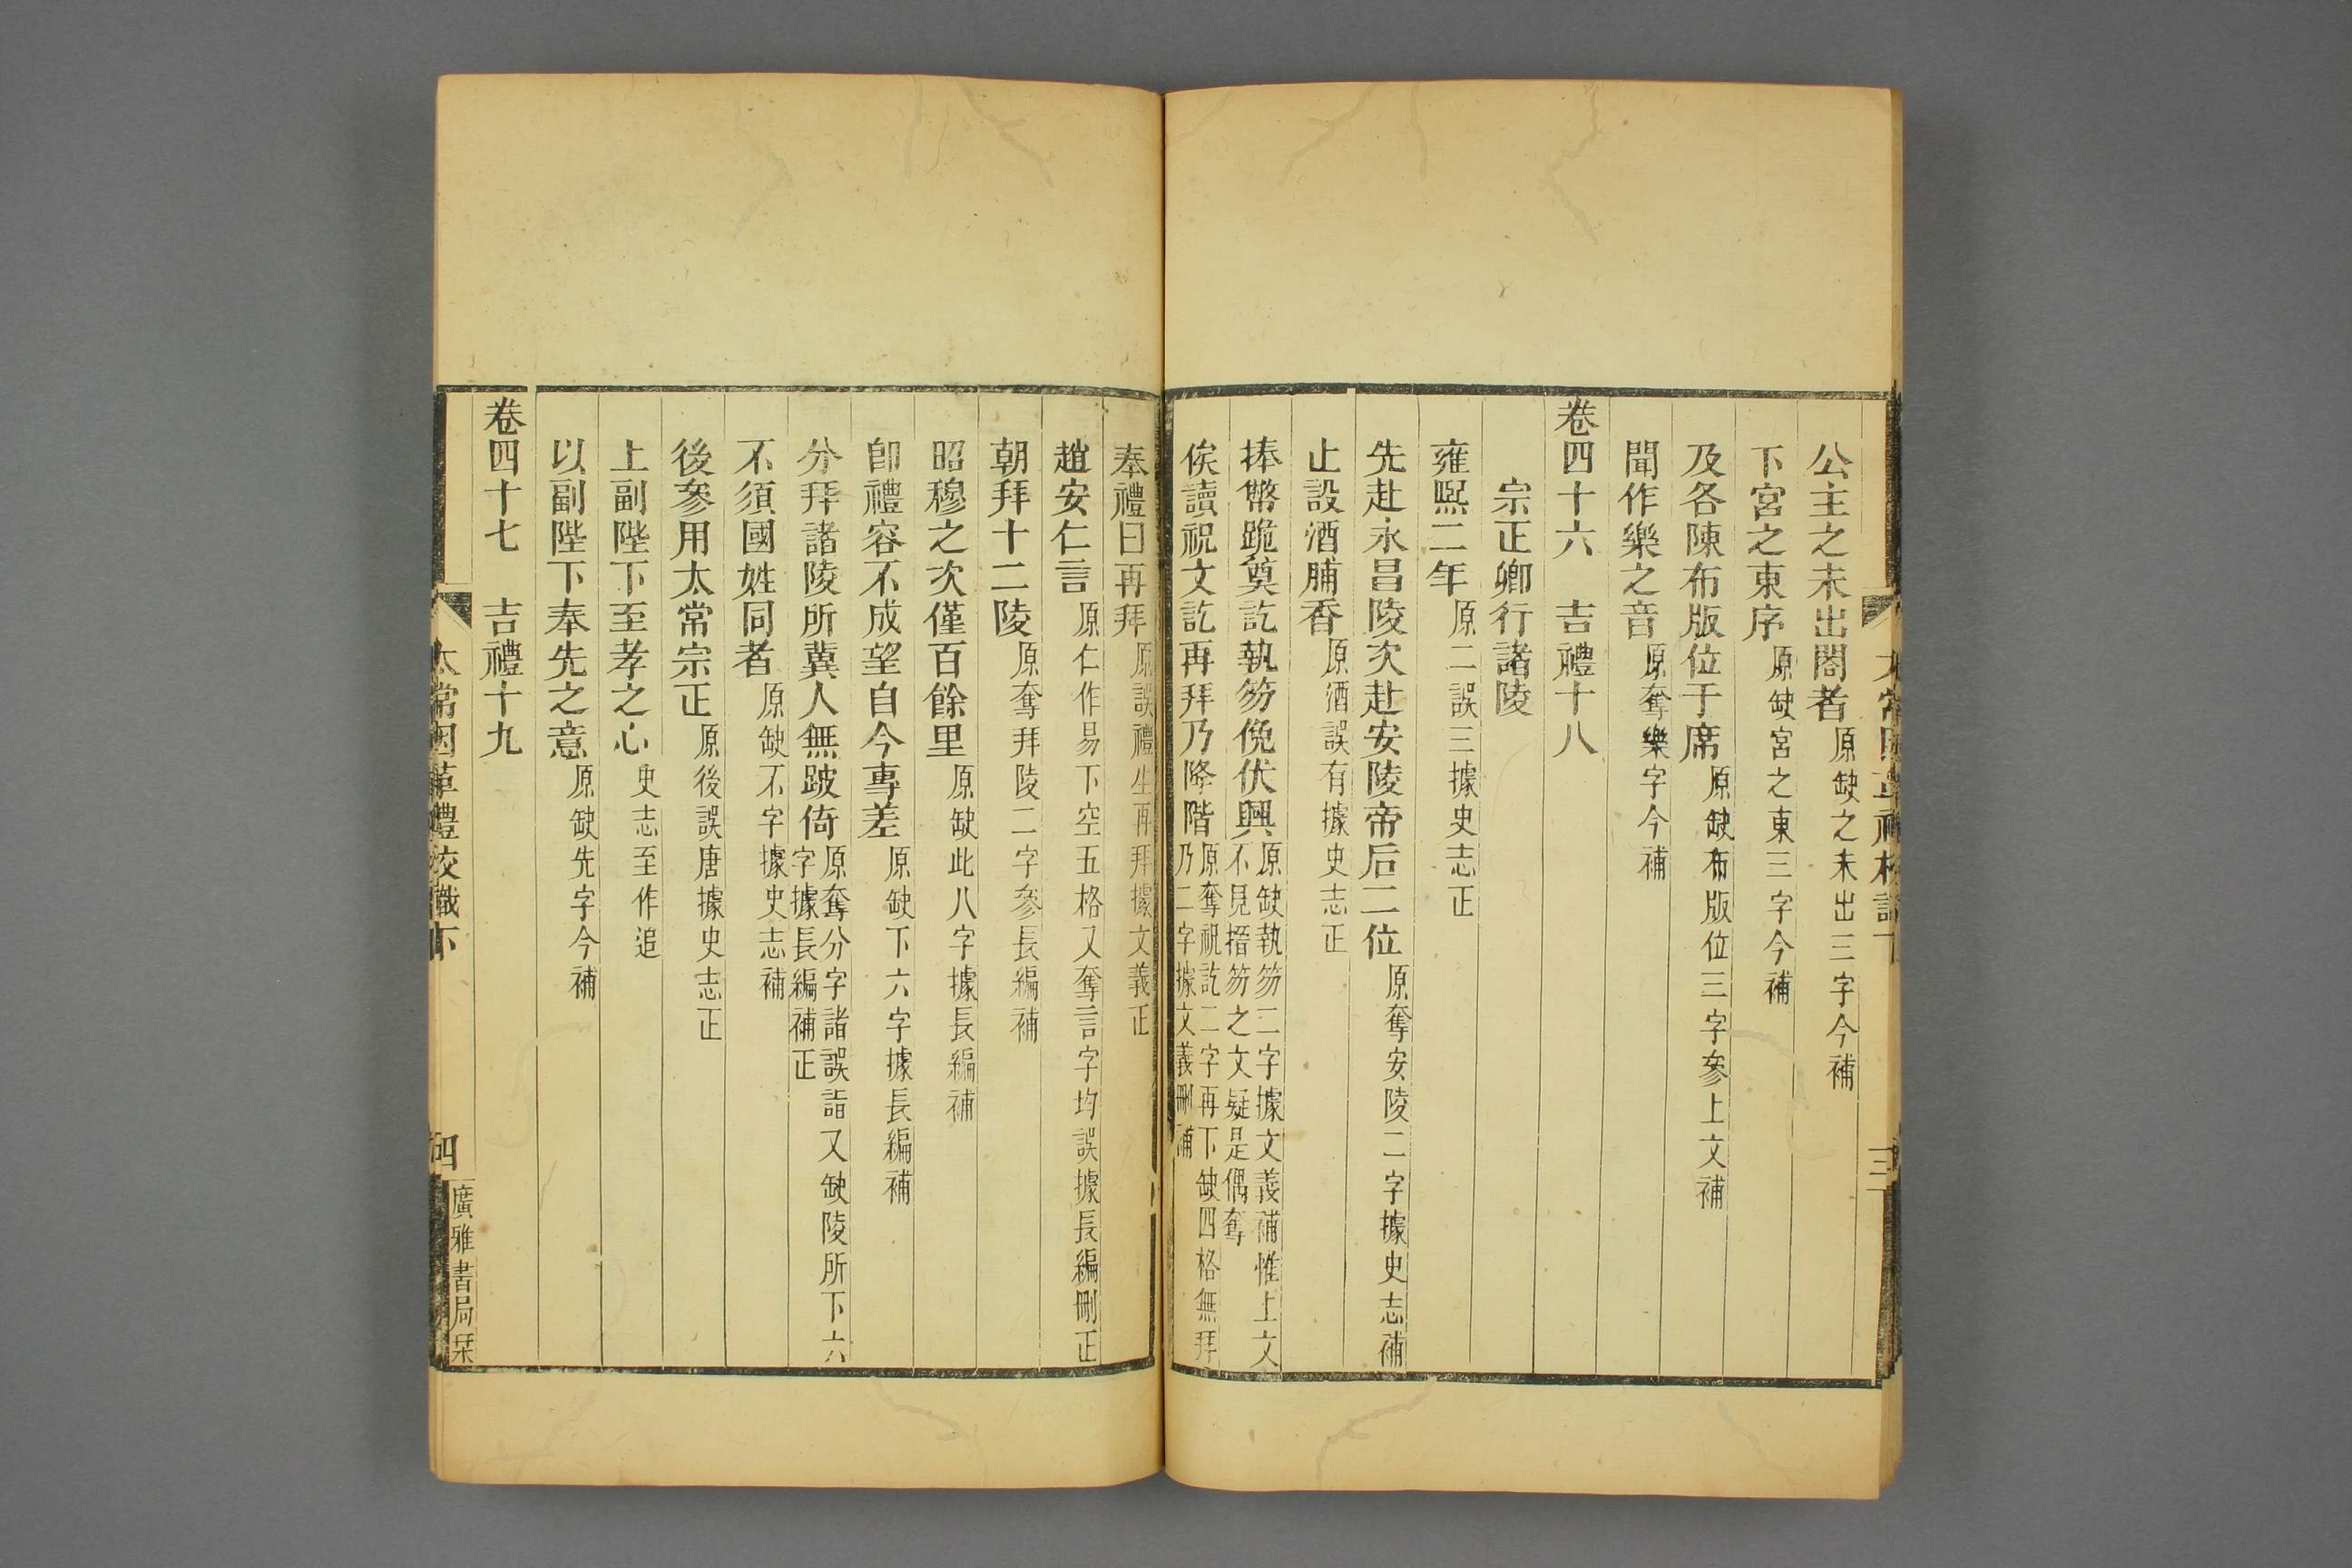 公主之未出閤者原缺之未出三字今補
下宮之東序原缺宮之東三字今補
及各陳布版位于席原缺布版位三字參上文補
聞作樂之音原奪樂字今補
卷四十六 吉禮十八
宗正卿行諸陵
雍熙二年原二誤三據史志正
先赴永昌陵次赴安陵帝后二位原奪安陵二字據史志補
止設酒脯香原酒誤有據史志正
捧幣跪奠訖執笏俛伏興原缺執笏二字據文義補惟上文不見搢笏之文疑是偶奪
俟讀祝文訖再拜乃降階原奪祝訖二字再下缺四格無拜乃二字據文義刪補
三
奉禮曰再拜原誤禮生再拜據文義正
趙安仁言原仁作易下空五格又奪言字均誤據長編刪正
朝拜十二陵原奪拜陵二字參長編補
昭穆之次僅百餘里原缺此八字據長編補
卽禮容不成望自今專差原缺下六字據長編補
分拜諸陵所冀人無跛倚原奪分字諸誤詣又缺陵所下六字據長編補正
不須國姓同者原缺不字據史志補
後參用太常宗正原後誤唐據史志正
上副陛下至孝之心史志至作追
以副陛下奉先之意原缺先字今補
卷四十七 吉禮十九
太常因革禮校識下
四
廣雅書局栞